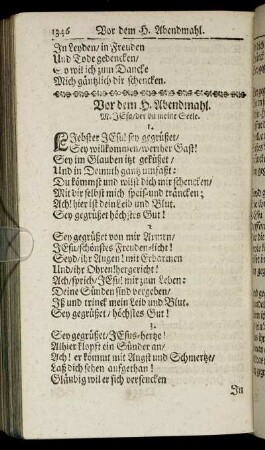 1346 Vor dem H. Abendmahl.
In Leyden/ in Freuden
Und Tode gedencken/
So wil ich zum Dancke
Mich gäntzlich dir schencken.
Vor dem H. Abendmahl.
M. JEsu/ der du meine Seele.
1.
LIebster JEsu! sey gegrüßet/
Sey willkommen/ werther Gast!
Sey im Glauben itzt geküßet/
Und in Demuth gantz umfaßt:
Du kömmst und wilst dich mir schencken/
Mit dir selbst mich speis-und träncken;
Ach! hier ist dein Leib und Blut.
Sey gegrüßet höchstes Gut!
2.
Sey gegrüßet von mir Armen/
JEsu/ schönstes Freuden-licht!
Seyd/ ihr Augen! mit Erbarmen
Und/ ihr Ohren! hergericht!
Ach/ sprich/ JEsu! mir zum Leben:
Deine Sünden sind vergeben/
Iß und trinck mein Leib und Blut.
Sey gegrüßet/ höchstes Gut!
3.
Sey gegrüßet/ JEsus-hertze!
Alhier klopft ein Sünder an/
Ach! er kömmt mit Angst und Schmertze/
Laß dich sehen aufgethan!
Gläubig wil er sich versencken
In